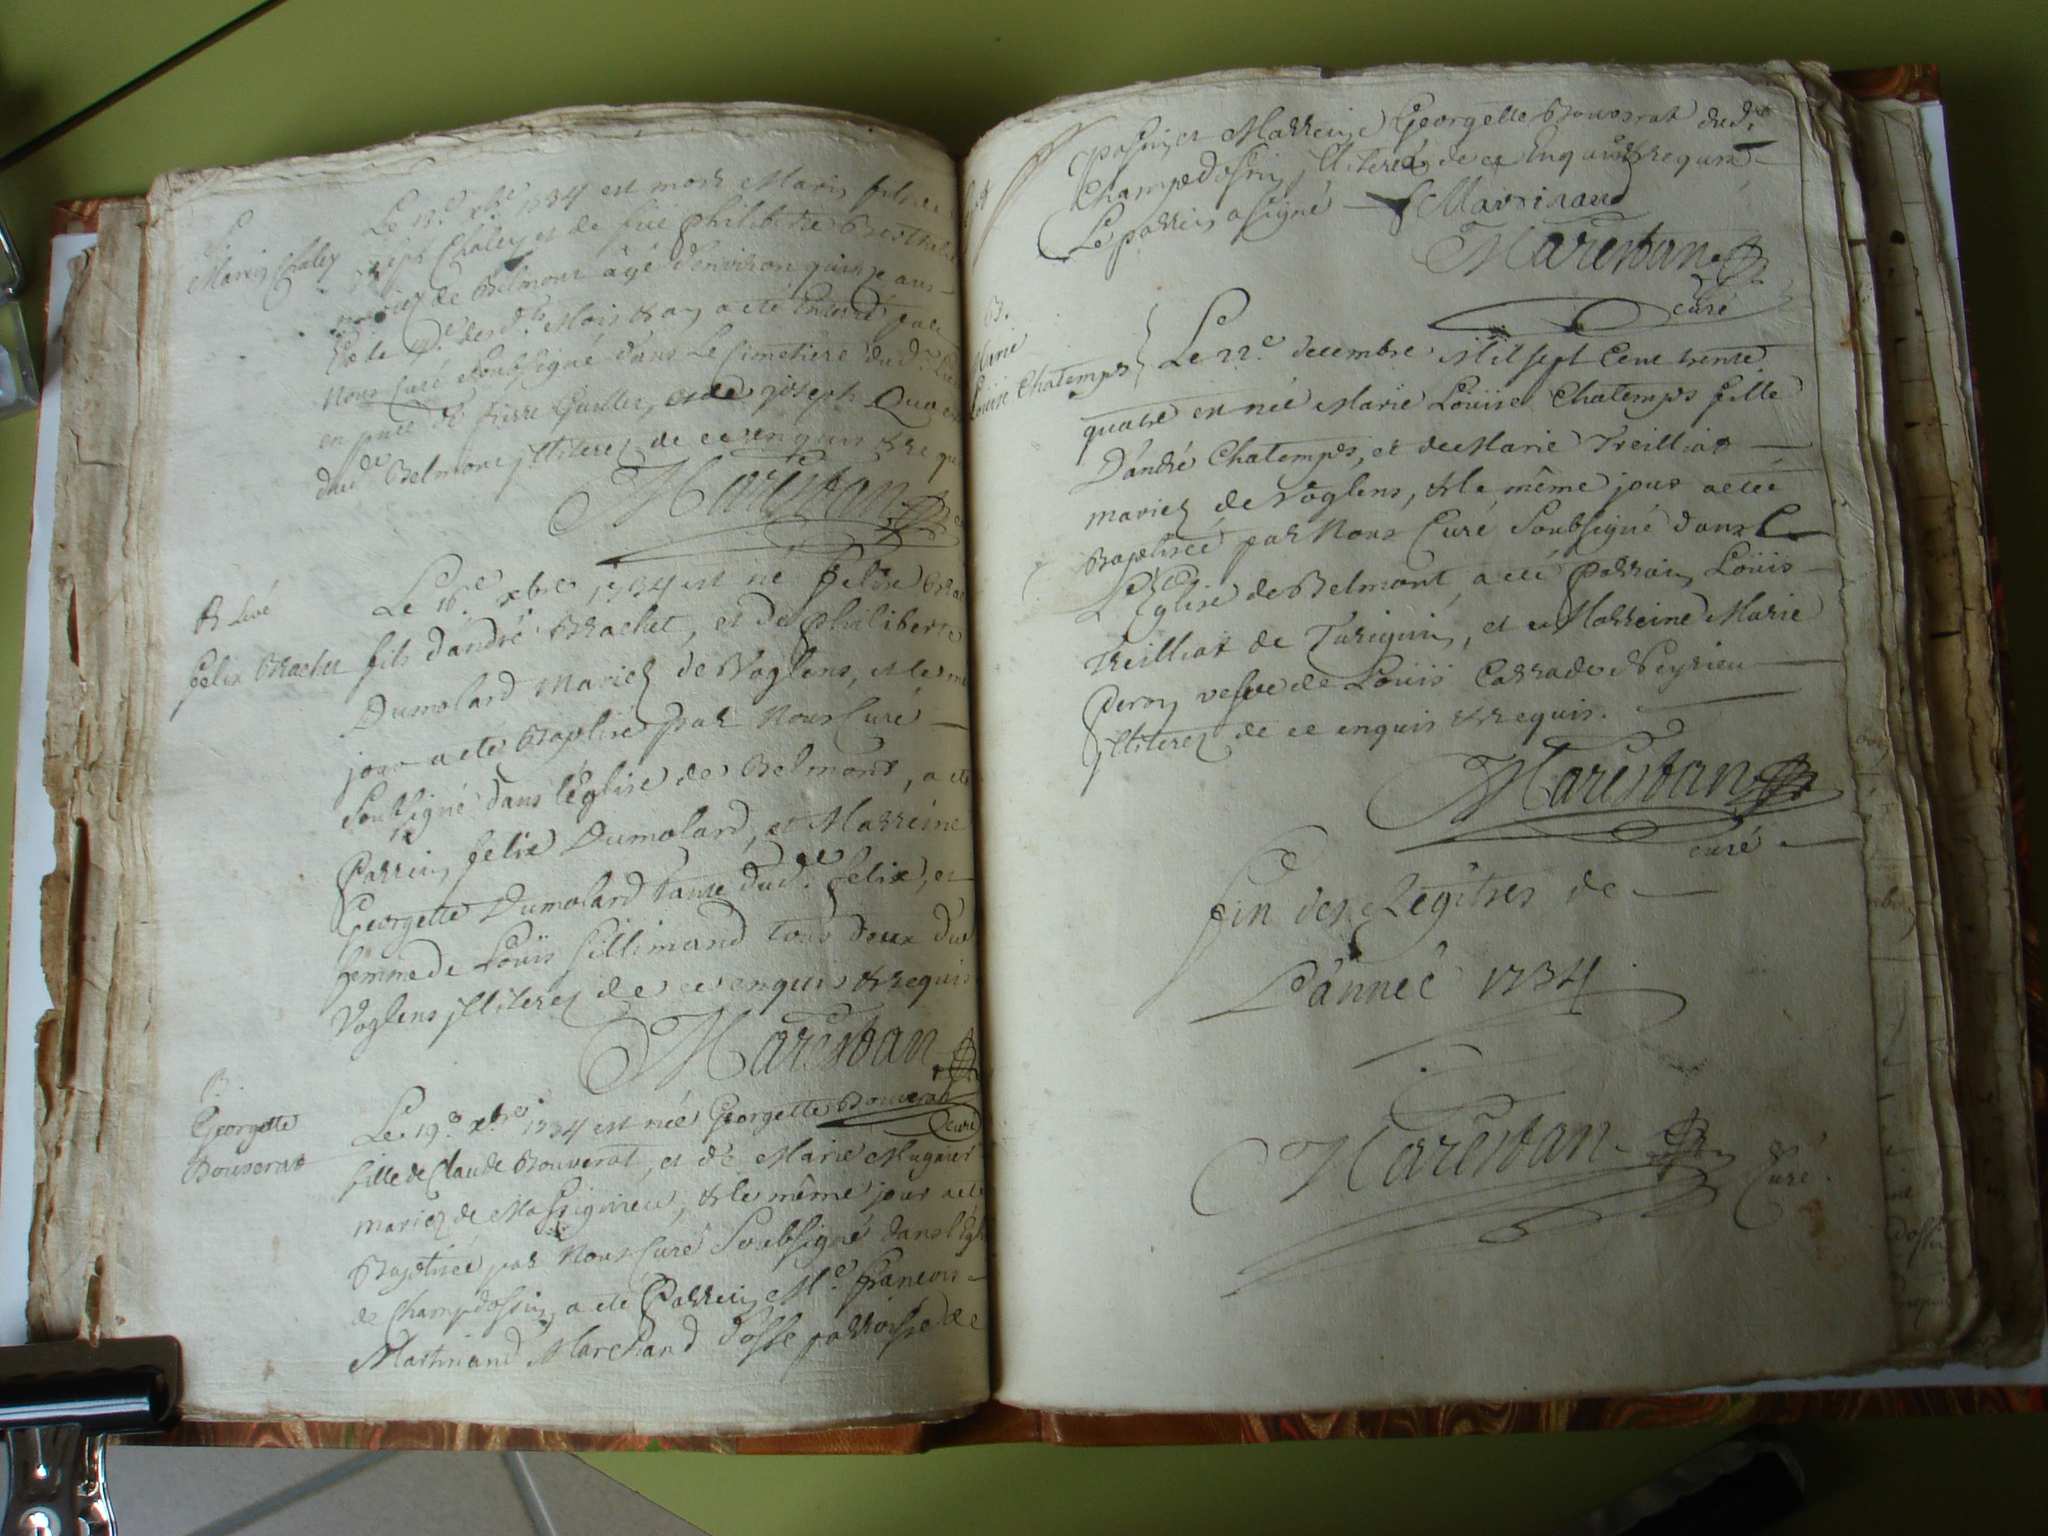 Marin Chaley
Le 13.e xbre 1734 est mort Marin fils de
joseph Chaley et de füe philiberte Berthelet
mariez de Belmont âgé d'environ quinze ans
Et le des dts Mois & an a été Enterré par
Nous Curé soubsigné dans Le Cimetiere dud. Lieu
en pnce de pierre Guillet, et de joseph
dud. Belmont jlliterez de ce enquis & requis
Marestan
B. Livé
felix Brachet
Le 16.e xbre 1734 est né felix Brachet
fils d'andré Brachet, et de philiberte
Dumolard mariez de Voglens, et le même
jour a eté Baptisé par Nous Curé
Soubsigné dans l'église de Belmont, a eté
Parrein felix Dumolard, et Marreine
Georgette Dumolard tante dud. felix, et
femme de Loüis Sillimand tous deux du
Voglens jlliterez de ce enquis & requis
Marestan
Curé
B.
Georgette
Bouverat
Le 19.e xbre 1734 est née Georgette Bouverat
fille de Claude Bouverat, et de Marie Mugnier
mariez de Massignieu, & le même jour a eté
Baptisée par Nous Curé Soubsigné dans l'Egl
de Champdossin, a eté Parrein M.e françois
Martinand Marchand d'osse parroisse de
et Marreine Georgette Bouverat dud.
Champdossin jlliterée de ce Enquise & requise
Le parrein a signé Martinand
Marestan
curé
B.
Marie
Loüise Chatemps
Le 22.e decembre Mil sept Cent trente
quatre est née Marie Loüise Chatemps fille
D'andré Chatemps, et de Marie Treilliat
mariez de Voglens, & le même jour a eté
Baptisée par Nous Curé Soubsigné dans
L'Eglise de Belmont, a eté Parrain Loüis
Treilliat de Turignin, et Marreine Marie
Peron vefve de Loüis Carra de Peyrieu
jlliterez de ce enquis & requis.
Marestan
curé
fin des Regitres de
L'année 1734
Marestan
Curé.